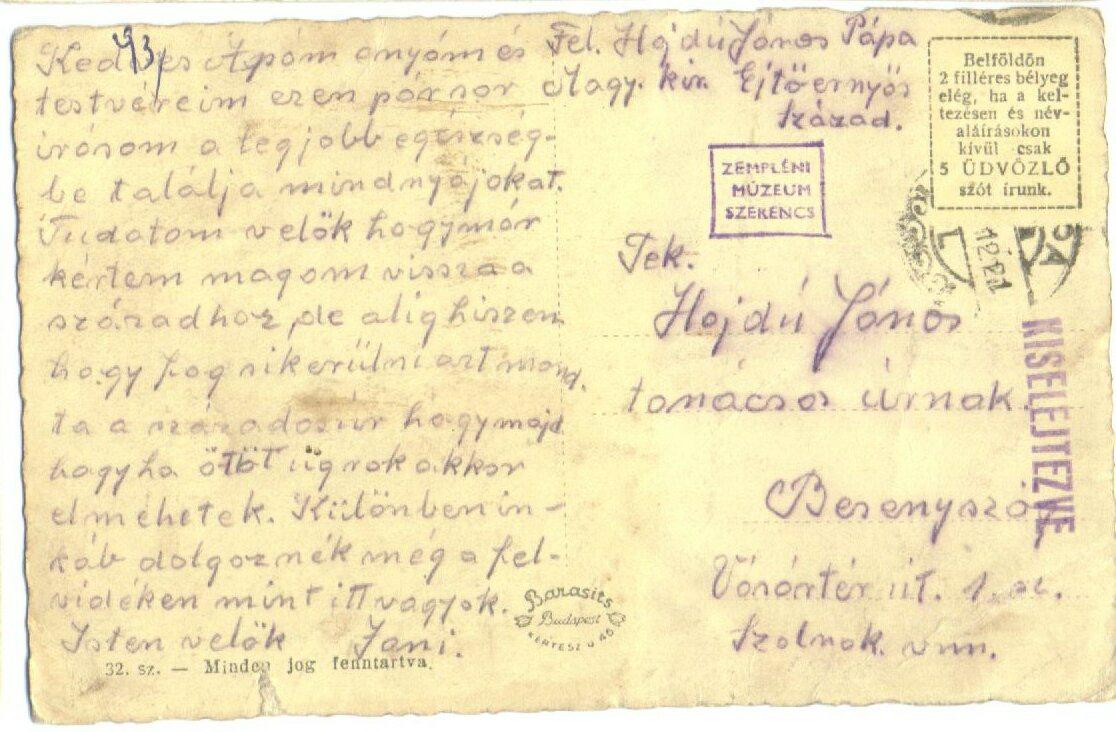 Kedves Apám anyám és
testvéreim ezen pár sor
írásom a legjobb egészség-
be találja mindnyájokat.
Tudatom velök hogy már
kértem magam vissza a
századhoz, de alig hiszen
hogy fog sikerülni azt mond.
ta a százados úr hogy majd
hogyha ötöt ugrok akkor
elmehetek. Különben in-
káb dolgoznék még a fel-
vidéken mint itt vagyok.
Isten velök Jani.
93
32. sz. — Minden jog fenntartva.
Barasits
Budapest
KERTÉSZ U 46
Fel. Hajdú János Pápa
Magy. kir. Ejtőernyős
század.
Belföldön
2 filléres bélyeg
elég, ha a kel-
tezésen és név-
aláírásokon
kívül csak
5 ÜDVÖZLŐ
szót írunk.
ZEMPLÉNI
MÚZEUM
SZERENCS
Tek.
Hajdú János
tanácsos úrnak.
Besenyszög
Vásártér út. 1. sz.
Szolnok. vm.
KISELEJTEZVE